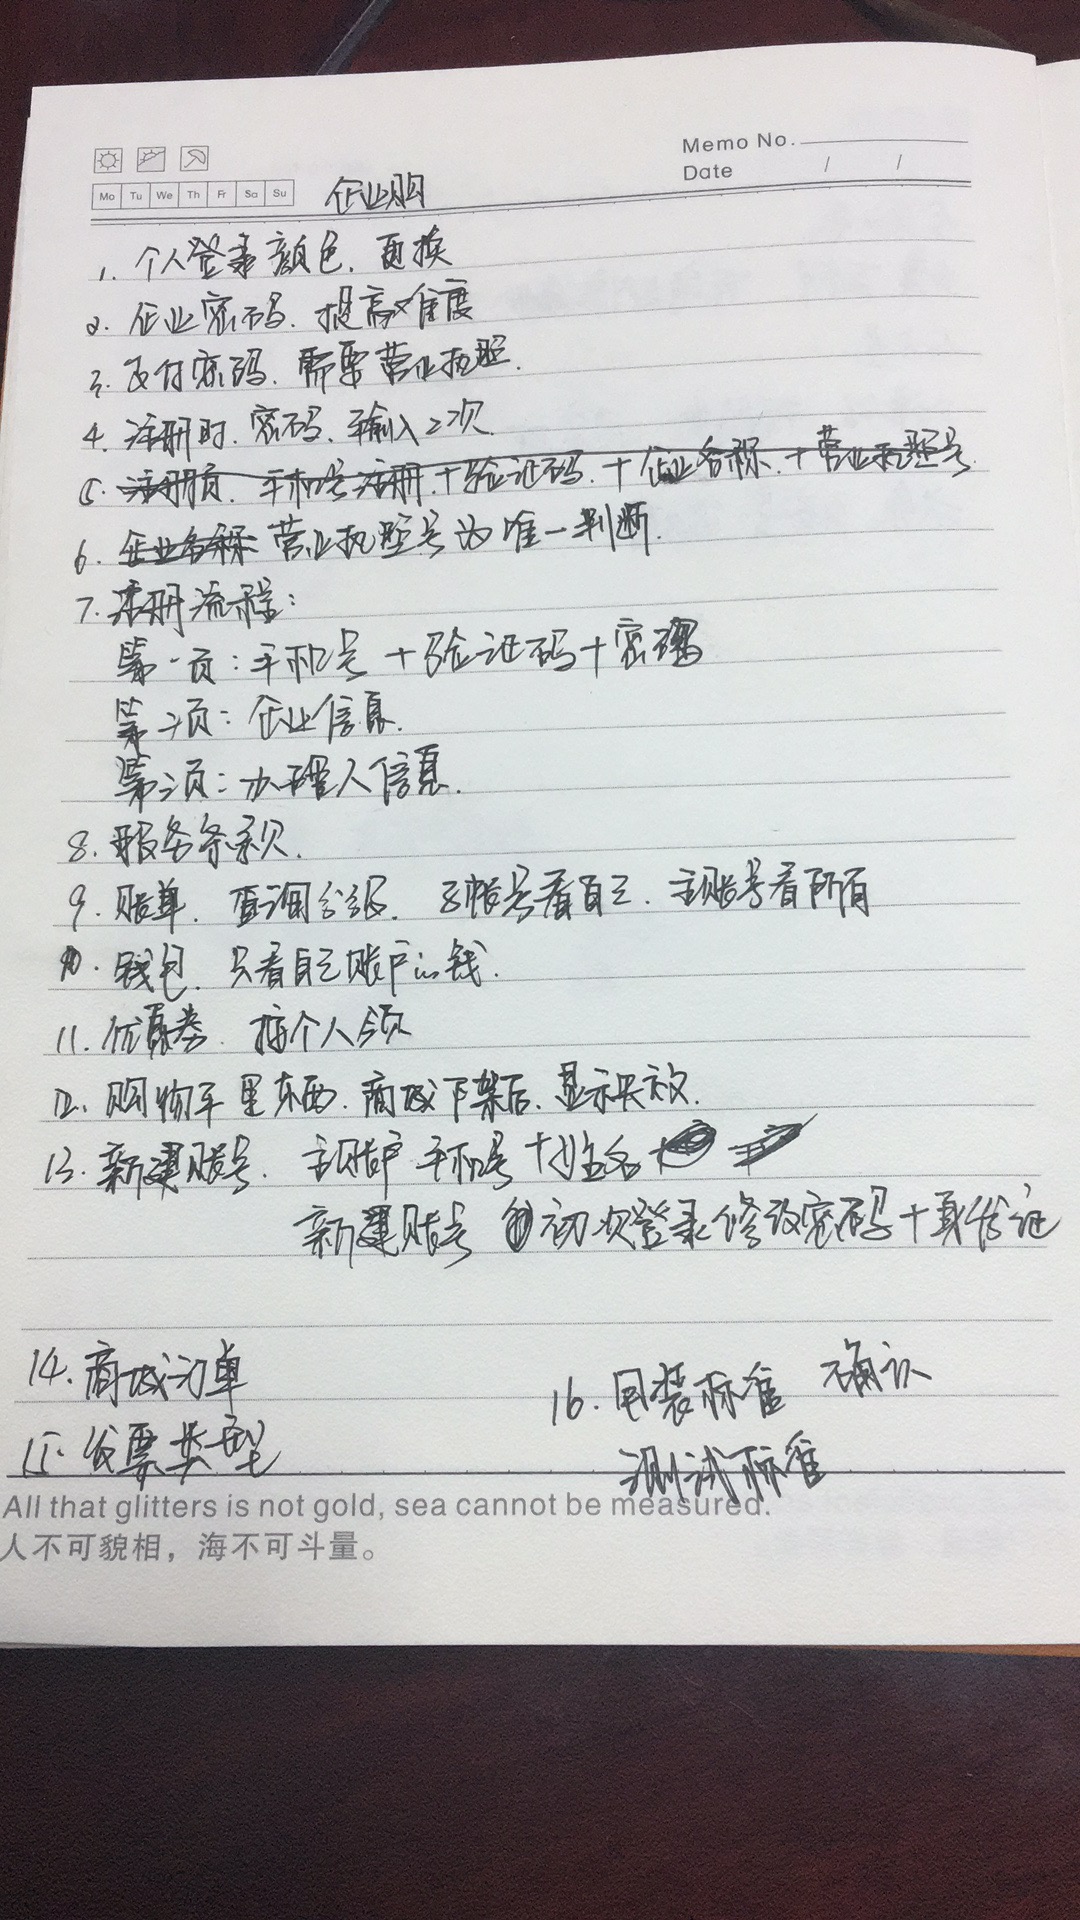 Memo No.
Date / /
Mo Tu We Th Fr Sa Su
企业购
1. 个人登录颜色. 更换
2. 企业密码. 提高难度
3. 支付密码. 需要营业执照.
4. 注册时. 密码. 输入2次.
5. 注册页. 手机号注册+验证码.+企业名称.+营业执照号.
6. 企业名称 营业执照号为唯一判断.
7. 注册流程:
第一页: 手机号+验证码+密码
第二页: 企业信息.
第三页: 办理人信息.
8. 服务条款.
9. 账单. 查询分级. 子帐号看自己. 主账号看所有
10. 钱包. 只看自己账户的钱.
11. 优惠券. 按个人领
12. 购物车里东西. 商城下架后. 显示失效.
13. 新建账号. 主账户 手机号+姓名
新建账号 初次登录修改密码+身份证
14. 商城订单
15. 发票类型
16. 包装标准 确认
测试标准
All that glitters is not gold, sea cannot be measured.
人不可貌相，海不可斗量。